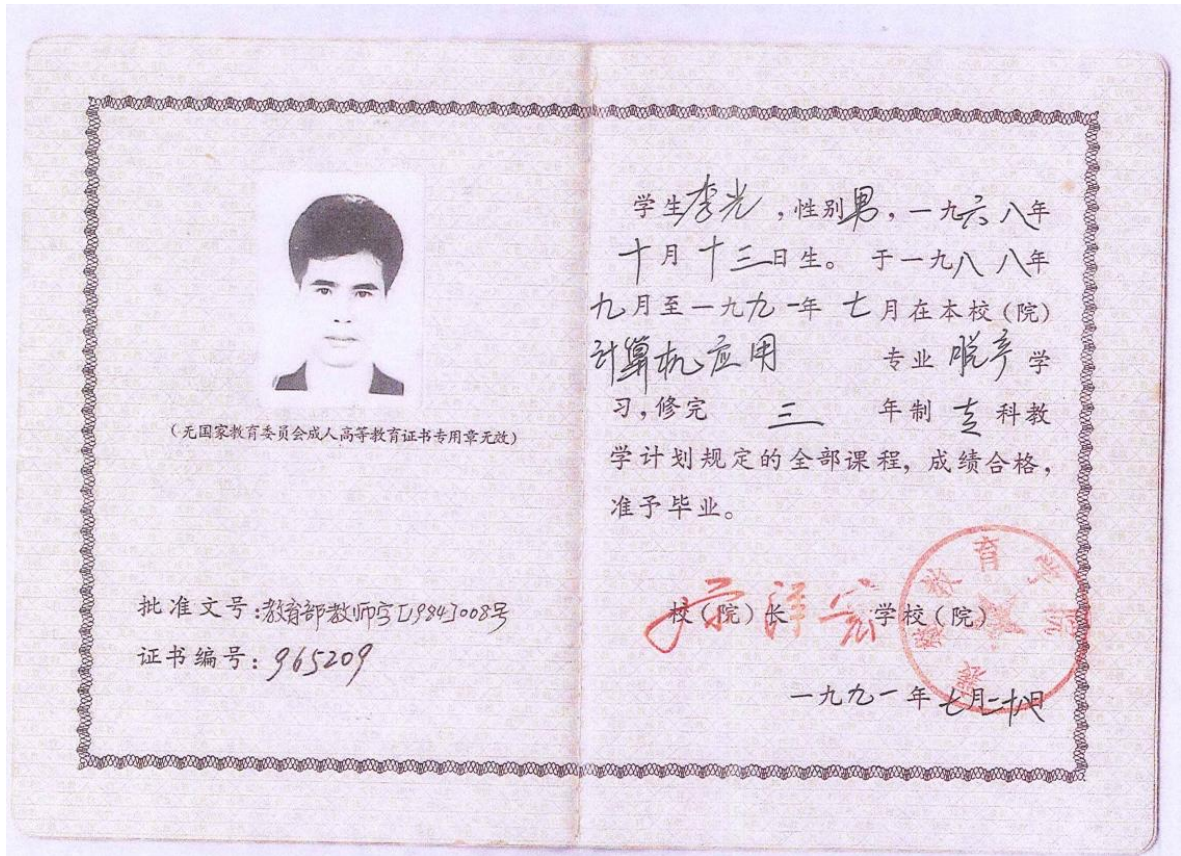 (无国家教育委员会成人高等教育证书专用章无效)
批准文号:教育部教师字[1984]008号
证书编号:965209
学生李光,性别男,一九六八年
十月十三日生。于一九八八年
九月至一九九一年七月在本校(院)
计算机应用 专业脱产学
习,修完 三 年制 专科教
学计划规定的全部课程,成绩合格,
准予毕业。
校(院)长 学校(院)
教育学院
一九九一年七月二十八日